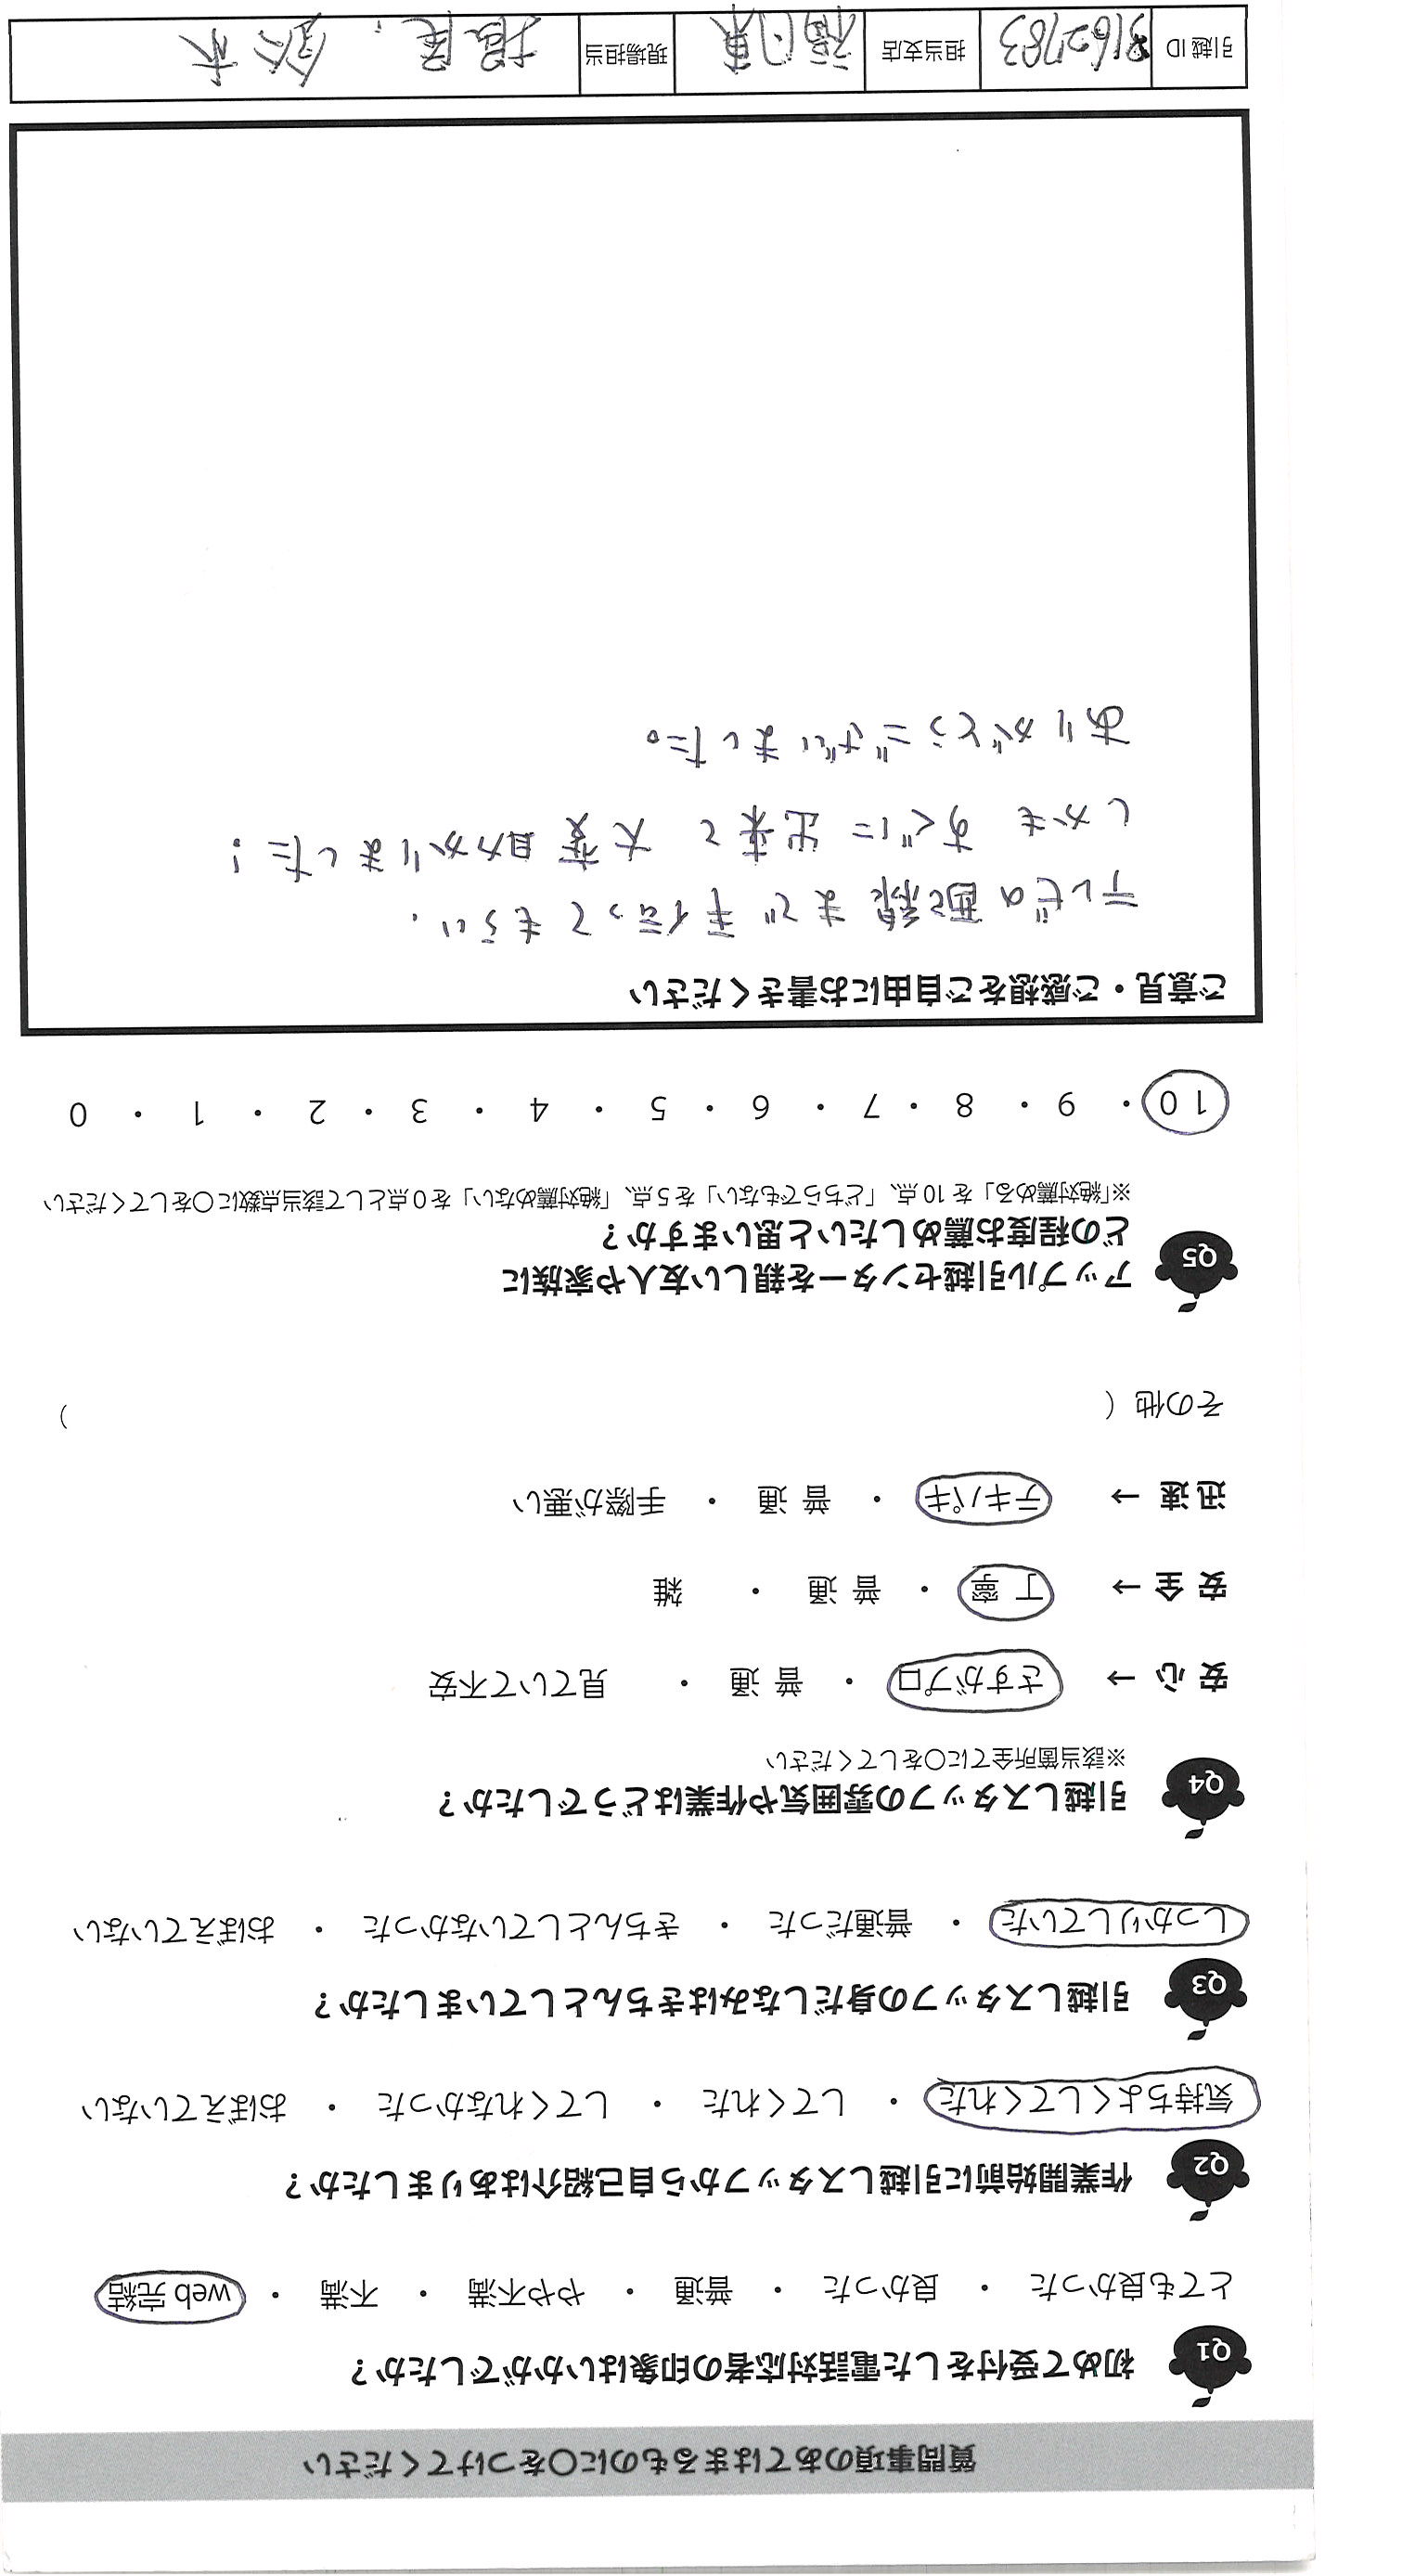 質問事項のあてはまるものに○をつけてください
Q1 初めて受付をした電話対応者の印象はいかがでしたか？
とても良かった ・ 良かった ・ 普通 ・ やや不満 ・ 不満 ・ web 完結
Q2 作業開始前に引越しスタッフから自己紹介はありましたか？
気持ちよくしてくれた ・ してくれた ・ してくれなかった ・ おぼえていない
Q3 引越しスタッフの身だしなみはきちんとしていましたか？
しっかりしていた ・ 普通だった ・ きちんとしていなかった ・ おぼえていない
Q4 引越しスタッフの雰囲気や作業はどうでしたか？
※該当箇所全てに○をしてください
安心 → さすがプロ ・ 普通 ・ 見ていて不安
安全 → 丁寧 ・ 普通 ・ 雑
迅速 → テキパキ ・ 普通 ・ 手際が悪い
その他（ ）
Q5 アップル引越センターを親しい友人や家族に
どの程度お薦めしたいと思いますか？
※「絶対薦める」を 10 点、「どちらでもない」を 5 点、「絶対薦めない」を 0 点として該当点数に○をしてください
10 ・ 9 ・ 8 ・ 7 ・ 6 ・ 5 ・ 4 ・ 3 ・ 2 ・ 1 ・ 0
ご意見・ご感想をご自由にお書きください
テレビの配線まで手伝ってもらい、
しかも すぐに出来て 大変助かりました！
ありがとうございました。
引越 ID 3162783 担当支店 福岡東 現場担当 堀尾. 鈴木